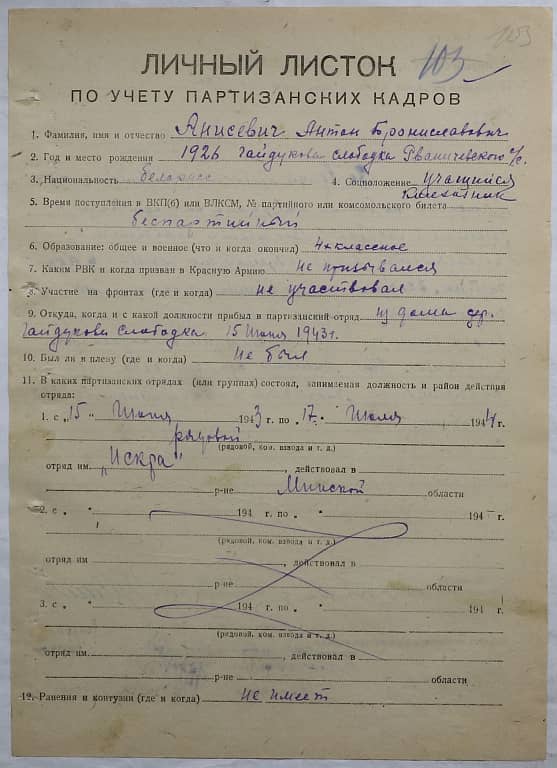 1253
ЛИЧНЫЙ ЛИСТОК 103
ПО УЧЕТУ ПАРТИЗАНСКИХ КАДРОВ
1. Фамилия, имя и отчество Анисевич Антон Брониславович
2. Год и место рождения 1926 Гайдукова слободка Рваничевского с/с.
3. Национальность белорусс 4. Соцположение учащийся
колхозник
5. Время поступления в ВКП(б) или ВЛКСМ, № партийного или комсомольского билета
беспартийный
6. Образование: общее и военное (что и когда окончил) 4х классное
7. Каким РВК и когда призван в Красную Армию не призывался
8. Участие на фронтах (где и когда) не участвовал
9. Откуда, когда и с какой должности прибыл в партизанский отряд из дома дер.
Гайдукова слободка 15 Июня 1943 г.
10. Был ли в плену (где и когда) не был
11. В каких партизанских отрядах (или группах) состоял, занимаемая должность и район действия
отряда:
1. с „15“ Июня 1943 г. по „17“ Июля 1944 г.
рядовой
(рядовой, ком. взвода и т. д.)
отряд им „Искра“, действовал в
р-не Минской области
2. с „ “ 194 г. по „ “ 194 г.
(рядовой, ком. взвода и т. д.)
отряд им. , действовал в
р-не области
3. с „ “ 194 г. по „ “ 194 г.
(рядовой, ком. взвода и т. д.)
отряд им. , действовал в
р-не области
12. Ранения и контузии (где и когда) не имеет